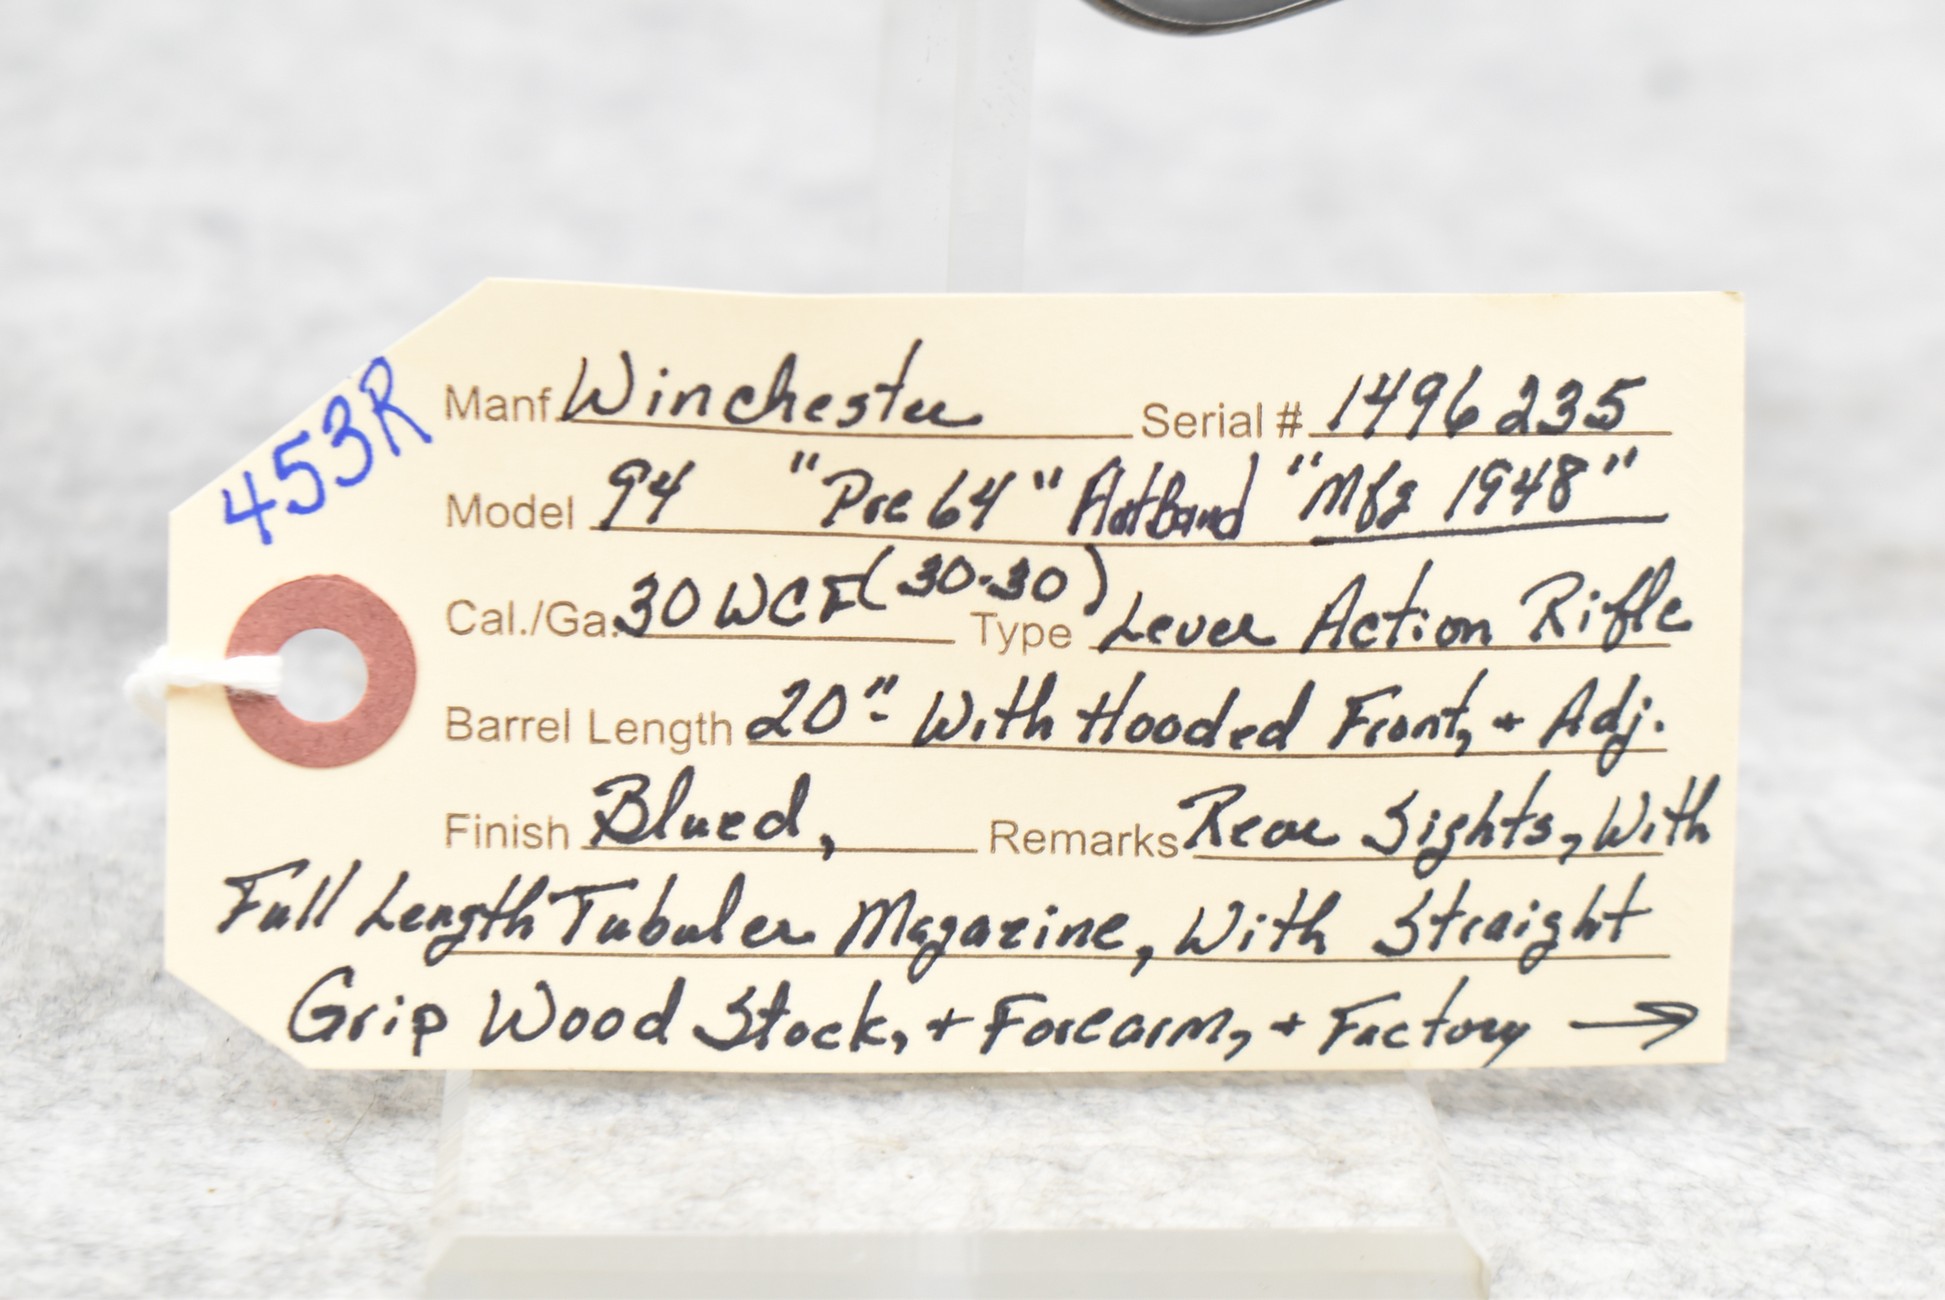 453R
Manf. Winchester Serial # 1496235
Model 94 "Pre 64" Flatband "Mfg 1948"
Cal./Ga. 30 WCF (30-30) Type Lever Action Rifle
Barrel Length 20" With Hooded Front, + Adj.
Finish Blued, Remarks Rear Sights, With
Full Length Tubuler Magazine, With Straight
Grip Wood Stock, + Forearm, + Factory →